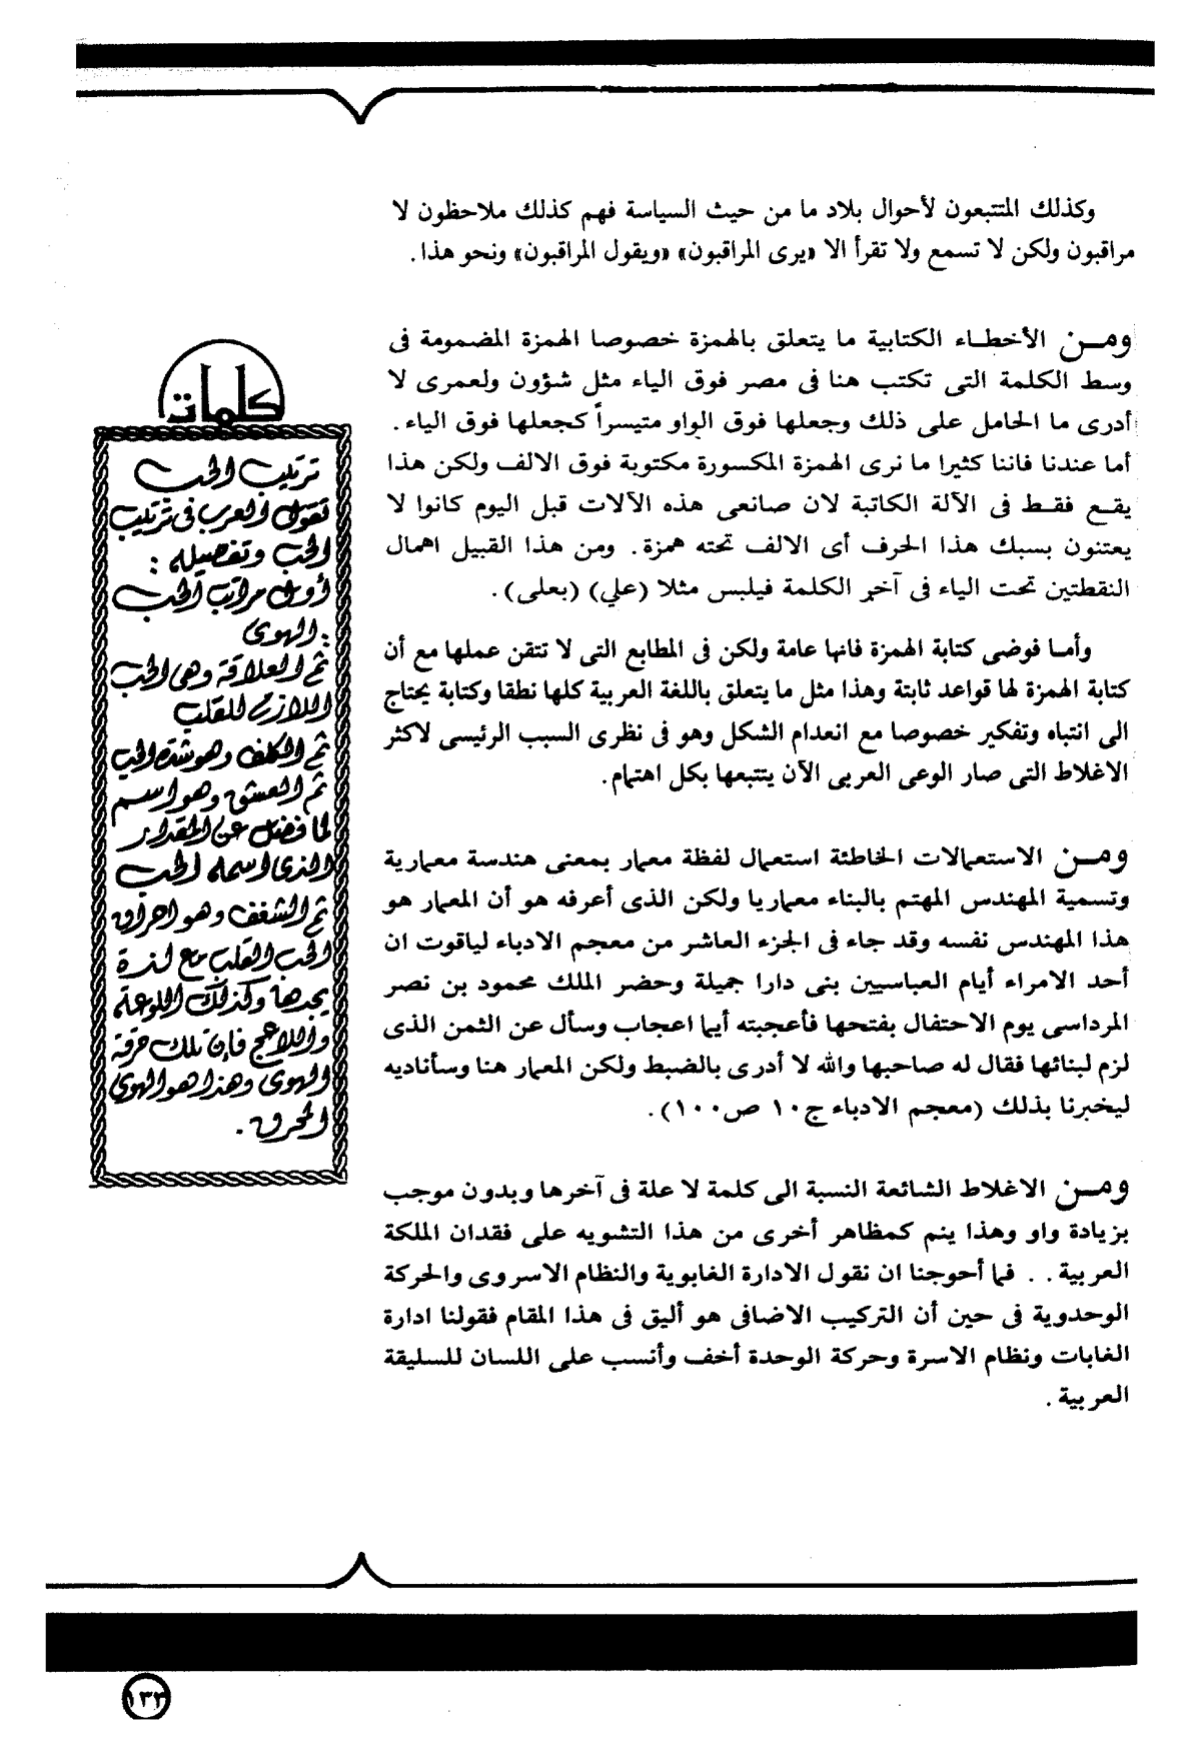 وكذلك المتتبعون لأحوال بلاد ما من حيث السياسة فهم كذلك ملاحظون لا
مراقبون ولكن لا تسمع ولا تقرأ الا «يرى المراقبون» «ويقول المراقبون» ونحو هذا.
ومـن الأخطـاء الكتابية ما يتعلق بالهمزة خصوصا الهمزة المضمومة فى
وسط الكلمة التى تكتب هنا فى مصر فوق الياء مثل شؤون ولعمرى لا
أدرى ما الحامل على ذلك وجعلها فوق الواو متيسراً كجعلها فوق الياء.
أما عندنا فاننا كثيرا ما نرى الهمزة المكسورة مكتوبة فوق الالف ولكن هذا
يقـع فقـط فى الآلة الكاتبة لان صانعى هذه الآلات قبل اليوم كانوا لا
يعتنون بسبك هذا الحرف أى الالف تحته همزة. ومن هذا القبيل اهمال
النقطتين تحت الياء فى آخر الكلمة فيلبس مثلا (علي) (بعلى).
وأمـا فوضى كتابة الهمزة فانها عامة ولكن فى المطابع التى لا تتقن عملها مع أن
كتابة الهمزة لها قواعد ثابتة وهذا مثل ما يتعلق باللغة العربية كلها نطقا وكتابة يحتاج
الى انتباه وتفكير خصوصا مع انعدام الشكل وهو فى نظرى السبب الرئيسى لاكثر
الاغلاط التى صار الوعى العربى الآن يتتبعها بكل اهتمام.
ومـن الاستعمالات الخاطئة استعمال لفظة معمار بمعنى هندسة معمارية
وتسمية المهندس المهتم بالبناء معماريا ولكن الذى أعرفه هو أن المعمار هو
هذا المهندس نفسه وقد جاء فى الجزء العاشر من معجم الادباء لياقوت ان
أحد الامراء أيام العباسيين بنى دارا جميلة وحضر الملك محمود بن نصر
المرداسى يوم الاحتفال بفتحها فأعجبته أيما اعجاب وسأل عن الثمن الذى
لزم لبنائها فقال له صاحبها والله لا أدرى بالضبط ولكن المعمار هنا وسأناديه
ليخبرنا بذلك (معجم الادباء ج١٠ ص١٠٠).
ومـن الاغلاط الشائعة النسبة الى كلمة لا علة فى آخرها وبدون موجب
بزيادة واو وهذا ينم كمظاهر أخرى من هذا التشويه على فقدان الملكة
العربية . . فما أحوجنا ان نقول الادارة الغابوية والنظام الاسروى والحركة
الوحدوية فى حين أن التركيب الاضافى هو أليق فى هذا المقام فقولنا ادارة
الغابات ونظام الاسرة وحركة الوحدة أخف وأنسب على اللسان للسليقة
العربية .
كلمات
ترتيب الحب
تقول العرب فى ترتيب
الحب وتفصيله :
أول مراتب الحب
: الهوى
ثم العلاقة وهى الحب
اللازم للقلب
ثم الكلف وهو شدة الحب
ثم العشق وهو اسم
لما فضل عن المقدار
الذى اسمه الحب
ثم الشغف وهو احراق
الحب القلب مع لذة
يجدها وكذلك اللوعة
واللاعج فإن تلك حرقة
الهوى وهذا هو الهوى
المحرق .
١٣٣